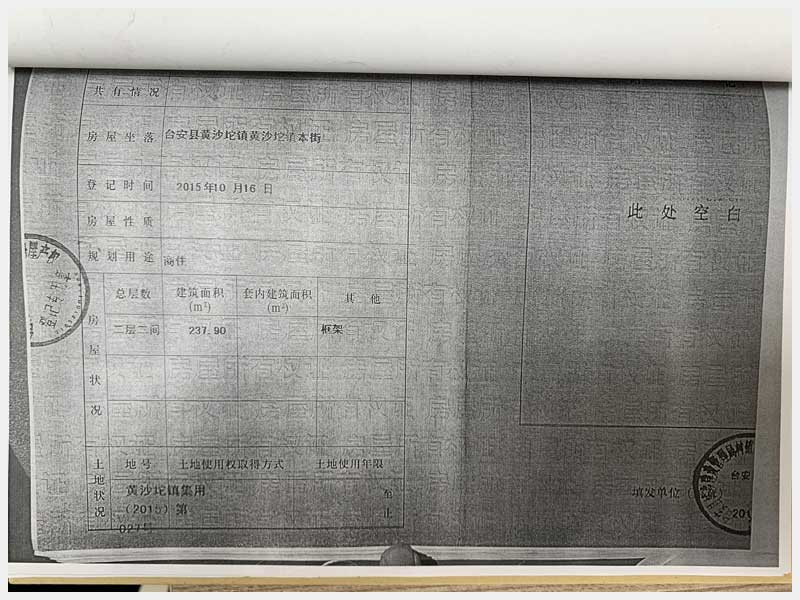 共有情况
房屋坐落 台安县黄沙坨镇黄沙坨镇本街
登记时间 2015年10月16日
房屋性质
规划用途 商住
房屋状况
总层数 建筑面积(m²) 套内建筑面积(m²) 其他
二层二间 237.90 框架
土地状况
地号 土地使用权取得方式 土地使用年限
黄沙坨镇集用
(2015)第
027号
至
止
此处空白
填发单位(
台安
201